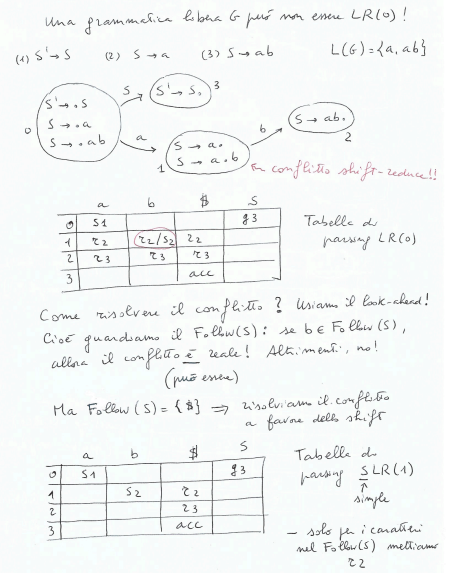 Una grammatica libera G può non essere LR(0)!
(1) S' → S (2) S → a (3) S → ab L(G) = {a, ab}
S' → .S
S → .a
S → .ab
0
S
S' → S.
3
a
S → a.
S → a.b
1
b
S → ab.
2
← conflitto shift-reduce!!
a b $ S
0 S1 g3
1 r2 r2/s2 r2
2 r3 r3 r3
3 acc
Tabella di
parsing LR(0)
Come risolvere il conflitto? Usiamo il look-ahead!
Cioè guardiamo il Follow(S): se b ∈ Follow(S),
allora il conflitto è reale! Altrimenti, no!
(può essere)
Ma Follow(S) = {$} ⇒ risolviamo il conflitto
a favore dello shift
a b $ S
0 S1 g3
1 S2 r2
2 r3
3 acc
Tabella di
parsing SLR(1)
↑
simple
– solo per i caratteri
nel Follow(S) mettiamo
r2